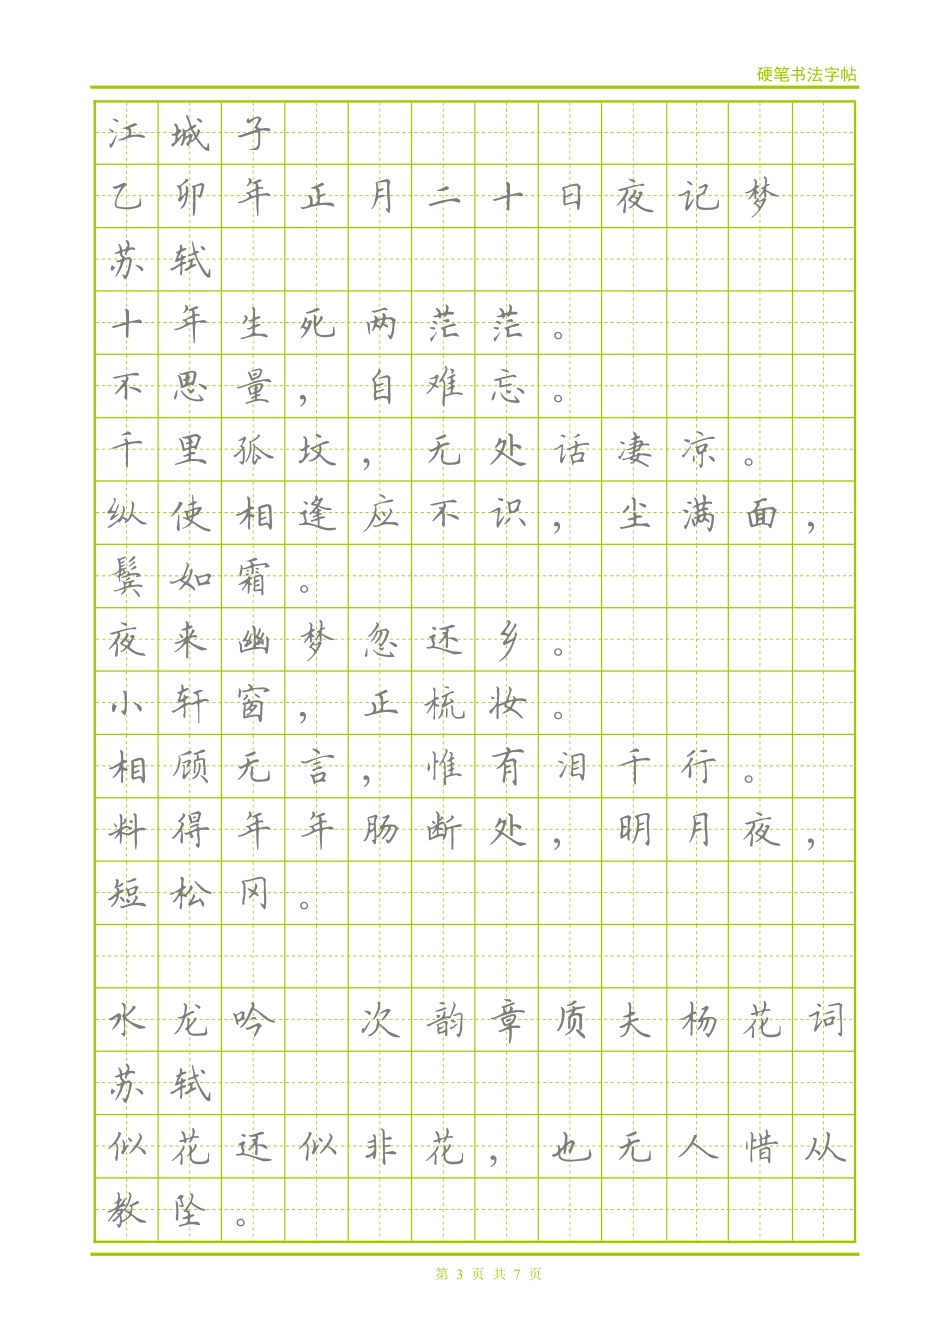 硬笔书法字帖
江城子
乙卯年正月二十日夜记梦
苏轼
十年生死两茫茫。
不思量，自难忘。
千里孤坟，无处话凄凉。
纵使相逢应不识，尘满面，
鬓如霜。
夜来幽梦忽还乡。
小轩窗，正梳妆。
相顾无言，惟有泪千行。
料得年年肠断处，明月夜，
短松冈。
水龙吟　次韵章质夫杨花词
苏轼
似花还似非花，也无人惜从
教坠。
第 3 页 共 7 页